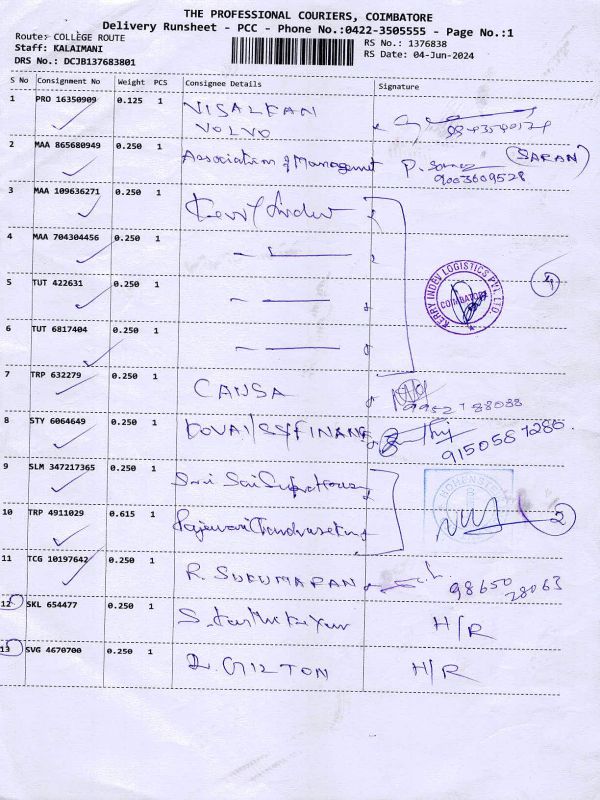 THE PROFESSIONAL COURIERS, COIMBATORE
Delivery Runsheet - PCC - Phone No.:0422-3505555 - Page No.:1
Route: COLLEGE ROUTE
Staff: KALAIMANI
RS No.: 1376838
RS Date: 04-Jun-2024
DRS No.: DCJB137683801
S No Consignment No Weight PCS Consignee Details Signature
1 PRO 16350909 0.125 1 VISALKAN
VOLVO
2 MAA 865680949 0.250 1 Association of Management P. (SARAN)
9003609528
3 MAA 109636271 0.250 1
4 MAA 704304456 0.250 1 — —
5 TUT 422631 0.250 1 — —
KERRY INDEV LOGISTICS PVT. LTD.
COIMBATORE
4
6 TUT 6817404 0.250 1 — —
7 TRP 632279 0.250 1 CANSA
8 STY 6064649 0.250 1 KOVAI FINANCE 9150587280
9 SLM 347217365 0.250 1 Sri Sai
10 TRP 4911029 0.615 1
2
11 TCG 10197642 0.250 1 R. SUKUMARAN 98650
28063
12 SKL 654477 0.250 1 H/R
13 SVG 4670700 0.250 1 H/R